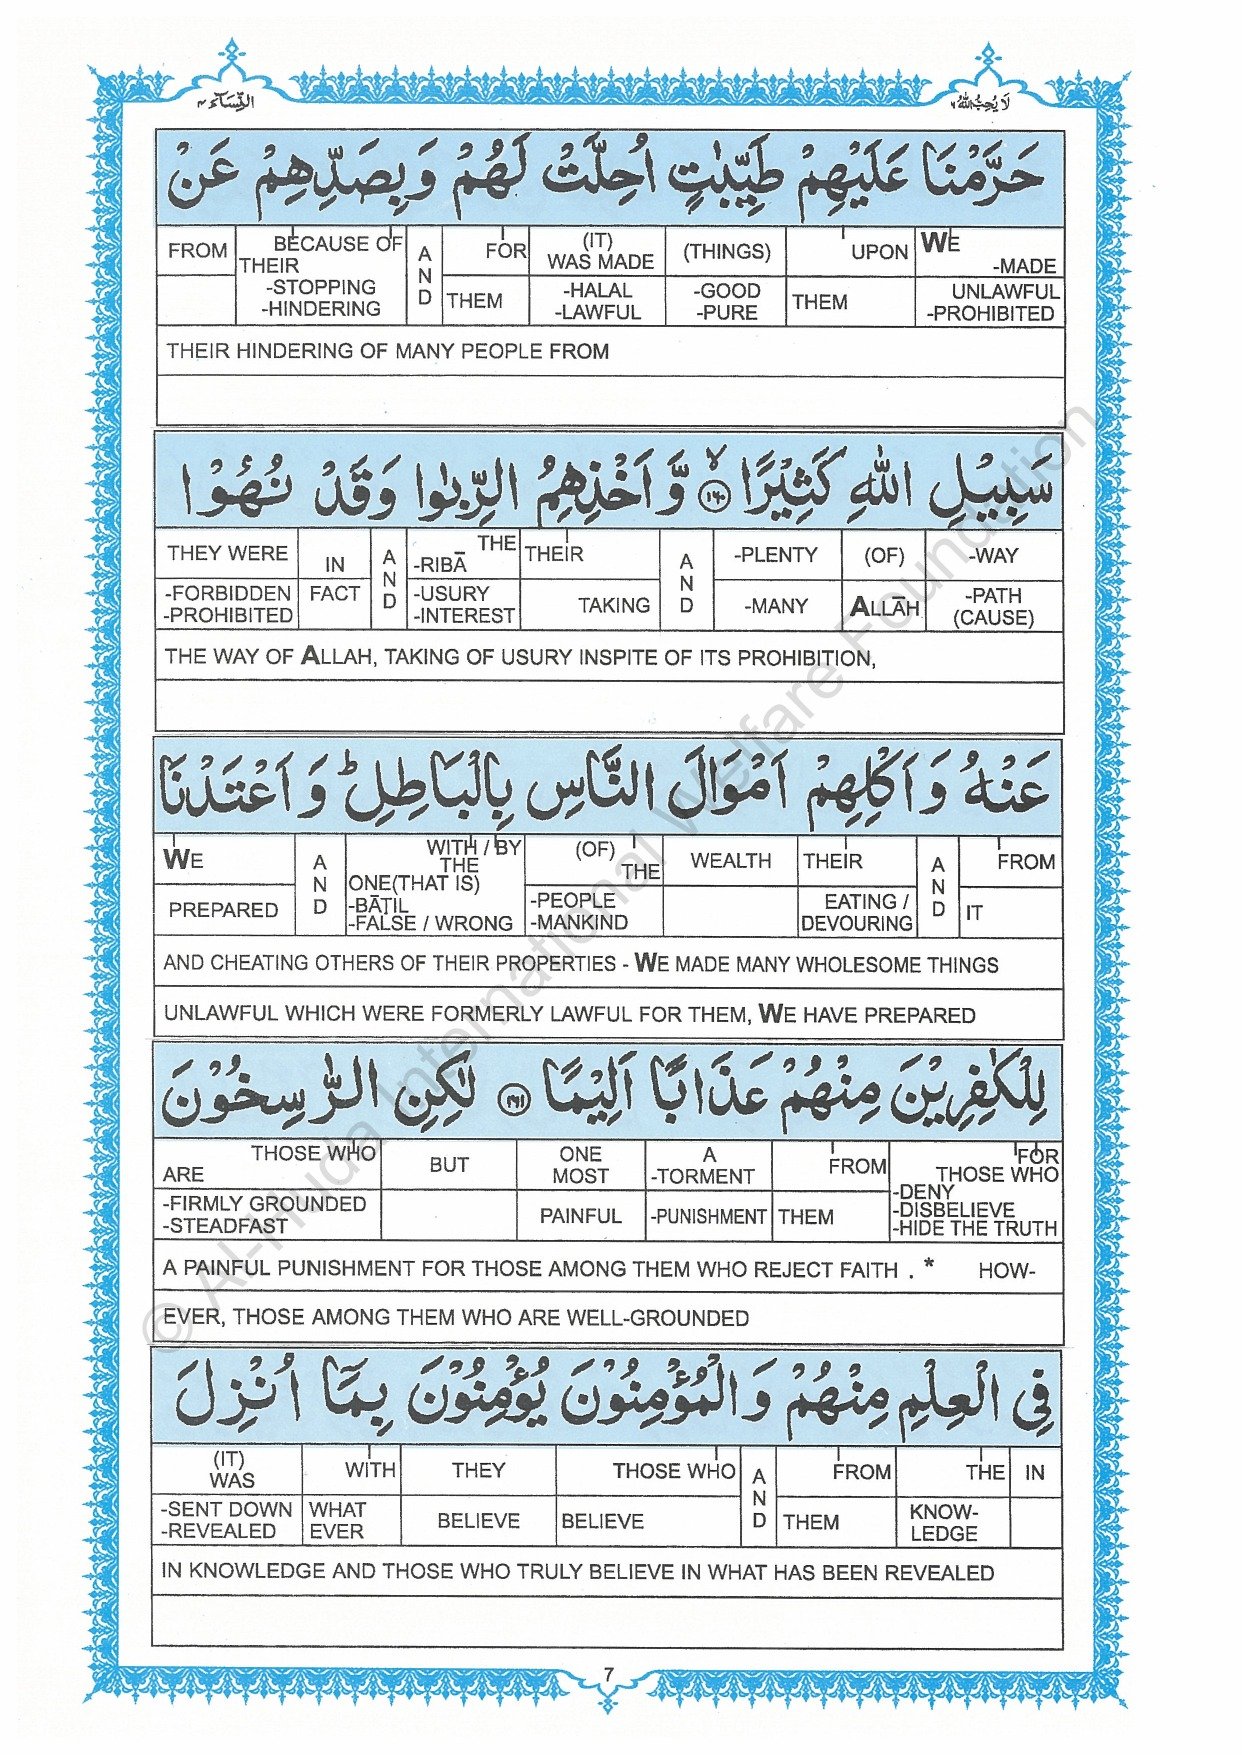 النِّسَآء ٤
لَا يُحِبُّ اللّٰهُ ٦
حَرَّمْنَا عَلَيْهِمْ طَيِّبٰتٍ اُحِلَّتْ لَهُمْ وَبِصَدِّهِمْ عَنْ
FROM BECAUSE OF THEIR -STOPPING -HINDERING AND FOR THEM (IT) WAS MADE -HALAL -LAWFUL (THINGS) -GOOD -PURE UPON THEM WE -MADE UNLAWFUL -PROHIBITED
THEIR HINDERING OF MANY PEOPLE FROM
سَبِيْلِ اللّٰهِ كَثِيْرًا ۙ١٦٠ وَّاَخْذِهِمُ الرِّبٰوا وَقَدْ نُهُوْا
THEY WERE -FORBIDDEN -PROHIBITED IN FACT AND THE -RIBĀ -USURY -INTEREST THEIR TAKING AND -PLENTY -MANY (OF) ALLĀH -WAY -PATH (CAUSE)
THE WAY OF ALLAH, TAKING OF USURY INSPITE OF ITS PROHIBITION,
عَنْهُ وَاَكْلِهِمْ اَمْوَالَ النَّاسِ بِالْبَاطِلِ ؕ وَاَعْتَدْنَا
WE PREPARED AND WITH / BY THE ONE(THAT IS) -BĀṬIL -FALSE / WRONG (OF) THE -PEOPLE -MANKIND WEALTH THEIR EATING / DEVOURING AND FROM IT
AND CHEATING OTHERS OF THEIR PROPERTIES - WE MADE MANY WHOLESOME THINGS
UNLAWFUL WHICH WERE FORMERLY LAWFUL FOR THEM, WE HAVE PREPARED
لِلْكٰفِرِيْنَ مِنْهُمْ عَذَابًا اَلِيْمًا ١٦١ لٰكِنِ الرّٰسِخُوْنَ
THOSE WHO ARE -FIRMLY GROUNDED -STEADFAST BUT ONE MOST PAINFUL A -TORMENT -PUNISHMENT FROM THEM FOR THOSE WHO -DENY -DISBELIEVE -HIDE THE TRUTH
A PAINFUL PUNISHMENT FOR THOSE AMONG THEM WHO REJECT FAITH . * HOW-
EVER, THOSE AMONG THEM WHO ARE WELL-GROUNDED
فِى الْعِلْمِ مِنْهُمْ وَالْمُؤْمِنُوْنَ يُؤْمِنُوْنَ بِمَآ اُنْزِلَ
(IT) WAS -SENT DOWN -REVEALED WITH WHAT EVER THEY BELIEVE THOSE WHO BELIEVE AND FROM THEM THE KNOW-LEDGE IN
IN KNOWLEDGE AND THOSE WHO TRULY BELIEVE IN WHAT HAS BEEN REVEALED
7
© Al-Huda International Welfare Foundation